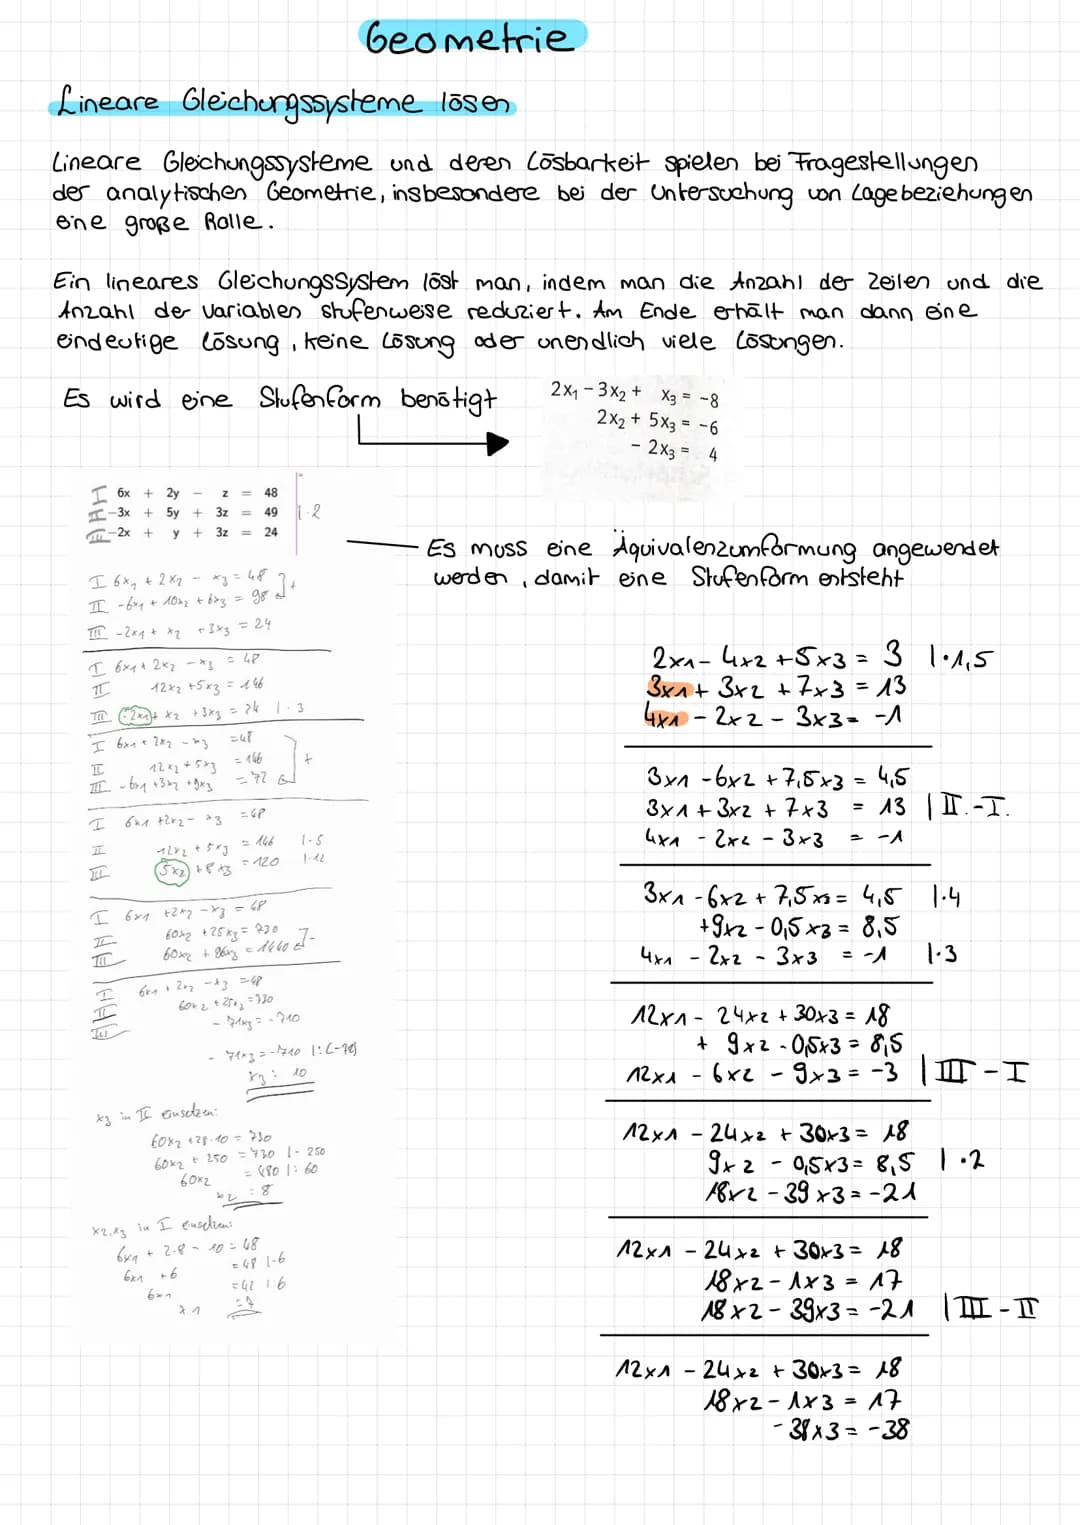 Geometrie
Lineare Gleichungssysteme lösen
Lineare Gleichungssysteme und deren Lösbarkeit spielen bei Fragestellungen
der analytischen Geometrie, insbesondere bei der Untersuchung von Lagebeziehungen
eine große Rolle.
Ein lineares Gleichungssystem löst man, indem man die Anzahl der Zeilen und die
Anzahl der Variablen stufenweise reduziert. Am Ende erhält man dann eine
eindeutige Lösung, keine Lösung oder unendlich viele Lösungen.
Es wird eine Stufenform benötigt
2x₁ - 3x₂ + x₃ = -8
2x₂ + 5x₃ = -6
- 2x₃ = 4
I 6x + 2y - z = 48
II -3x + 5y + 3z = 49 |·2
III -2x + y + 3z = 24
Es muss eine Äquivalenzumformung angewendet
werden, damit eine Stufenform entsteht
I 6x₁ + 2x₂ - x₃ = 48
II -6x₁ + 10x₂ + 6x₃ = 98 +
III -2x₁ + x₂ + 3x₃ = 24
I 6x₁ + 2x₂ - x₃ = 48
II 12x₂ + 5x₃ = 146
III -2x₁ + x₂ + 3x₃ = 24 |·3
I 6x₁ + 2x₂ - x₃ = 48
II 12x₂ + 5x₃ = 146 +
III -6x₁ + 3x₂ + 9x₃ = 72
I 6x₁ + 2x₂ - x₃ = 48
II 12x₂ + 5x₃ = 146 |·5
III 5x₂ + 8x₃ = 120 |·12
I 6x₁ + 2x₂ - x₃ = 48
II 60x₂ + 25x₃ = 730
III 60x₂ + 96x₃ = 1440 -
I 6x₁ + 2x₂ - x₃ = 48
II 60x₂ + 25x₃ = 730
III - 71x₃ = -710
- 71x₃ = -710 |:(-71)
x₃ = 10
x₃ in II einsetzen:
60x₂ + 25·10 = 730
60x₂ + 250 = 730 |- 250
60x₂ = 480 |: 60
x₂ = 8
x₂, x₃ in I einsetzen:
6x₁ + 2·8 - 10 = 48
6x₁ + 6 = 48 |-6
6x₁ = 42 |:6
x₁ = 7
2x1 - 4x2 + 5x3 = 3 |·1,5
3x1 + 3x2 + 7x3 = 13
4x1 - 2x2 - 3x3 = -1
3x1 - 6x2 + 7,5x3 = 4,5
3x1 + 3x2 + 7x3 = 13 | II.-I.
4x1 - 2x2 - 3x3 = -1
3x1 - 6x2 + 7,5x3 = 4,5 |·4
+9x2 - 0,5x3 = 8,5
4x1 - 2x2 - 3x3 = -1 |·3
12x1 - 24x2 + 30x3 = 18
+ 9x2 - 0,5x3 = 8,5
12x1 - 6x2 - 9x3 = -3 | III - I
12x1 - 24x2 + 30x3 = 18
9x2 - 0,5x3 = 8,5 |·2
18x2 - 39x3 = -21
12x1 - 24x2 + 30x3 = 18
18x2 - 1x3 = 17
18x2 - 39x3 = -21 | III - II
12x1 - 24x2 + 30x3 = 18
18x2 - 1x3 = 17
- 38x3 = -38